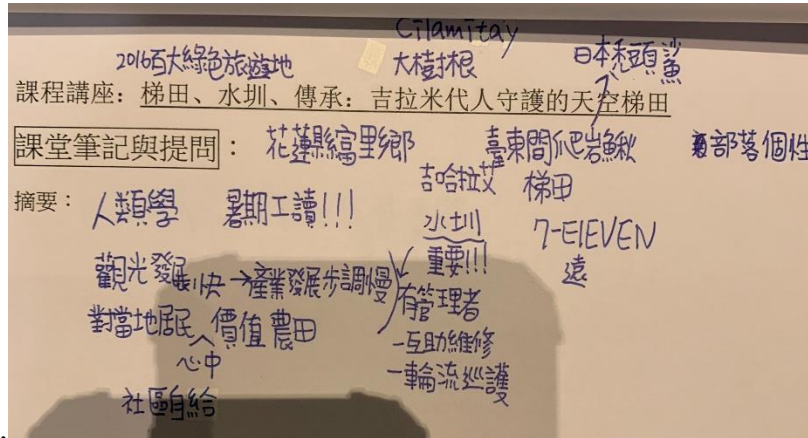 Cilamitay
2016百大綠色旅遊地 大樹根 日本禿頭鯊
課程講座：梯田、水圳、傳承：吉拉米代人守護的天空梯田
課堂筆記與提問： 花蓮縣富里鄉 臺東間爬岩鰍 部落個性
吉哈拉艾 梯田
摘要： 人類學 暑期工讀!!! 水圳 7-ElEVEN
重要!!! 遠
觀光發展 快→產業發展步調慢 有管理者
對當地居民 價值 農田 -互助維修
心中 -輪流巡護
社區自給